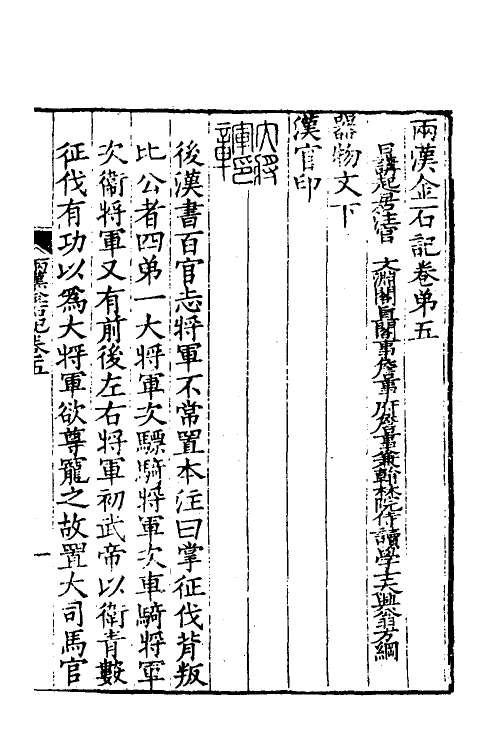 兩漢金石記卷第五
日講起居注官 文淵閣直閣事詹事府詹事兼翰林院侍讀學士大興翁方綱
器物文下
漢官印
大將
軍印
章
後漢書百官志將軍不常置本注曰掌征伐背叛
比公者四第一大將軍次驃騎將軍次車騎將軍
次衞將軍又有前後左右將軍初武帝以衞青數
征伐有功以爲大將軍欲尊寵之故置大司馬官
兩漢金石記卷五
一